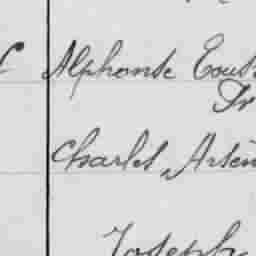 Alphonse Tous
Fr
Charles Arsèn
Joseph